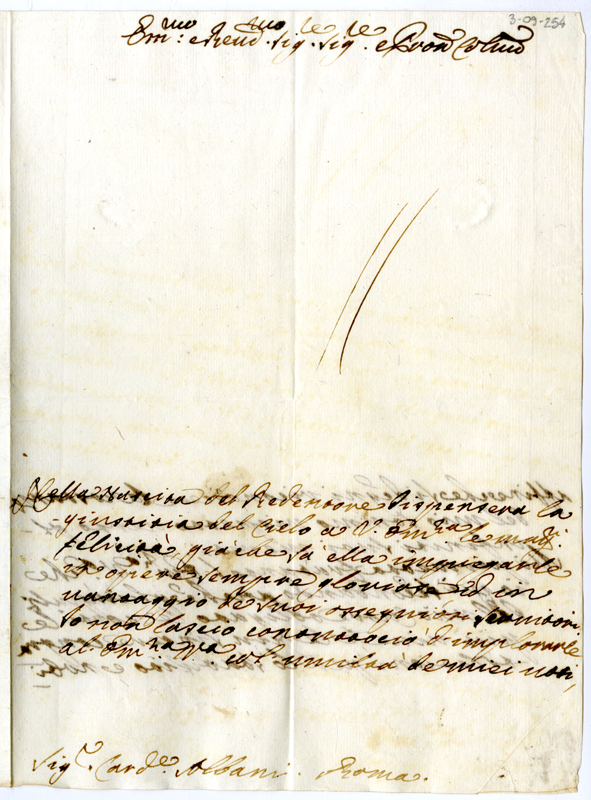 3-09-254
Em.mo e Reu.mo Sig.re Sig.re e Pron Col.mo
Nella Nascita del Redentore dispenserà la
giustizia del Cielo a V. Em.za le magg.
felicità, giache sà ella impiegarle
in opere sempre gloriose ed in
uantaggio de suoi ossequiosi seruitori
Io non lascio con tutto ciò d'implorarle
al Em.za V.ra coll' umiltà de miei uoti,
Sig.r Card.e Albani. Roma.